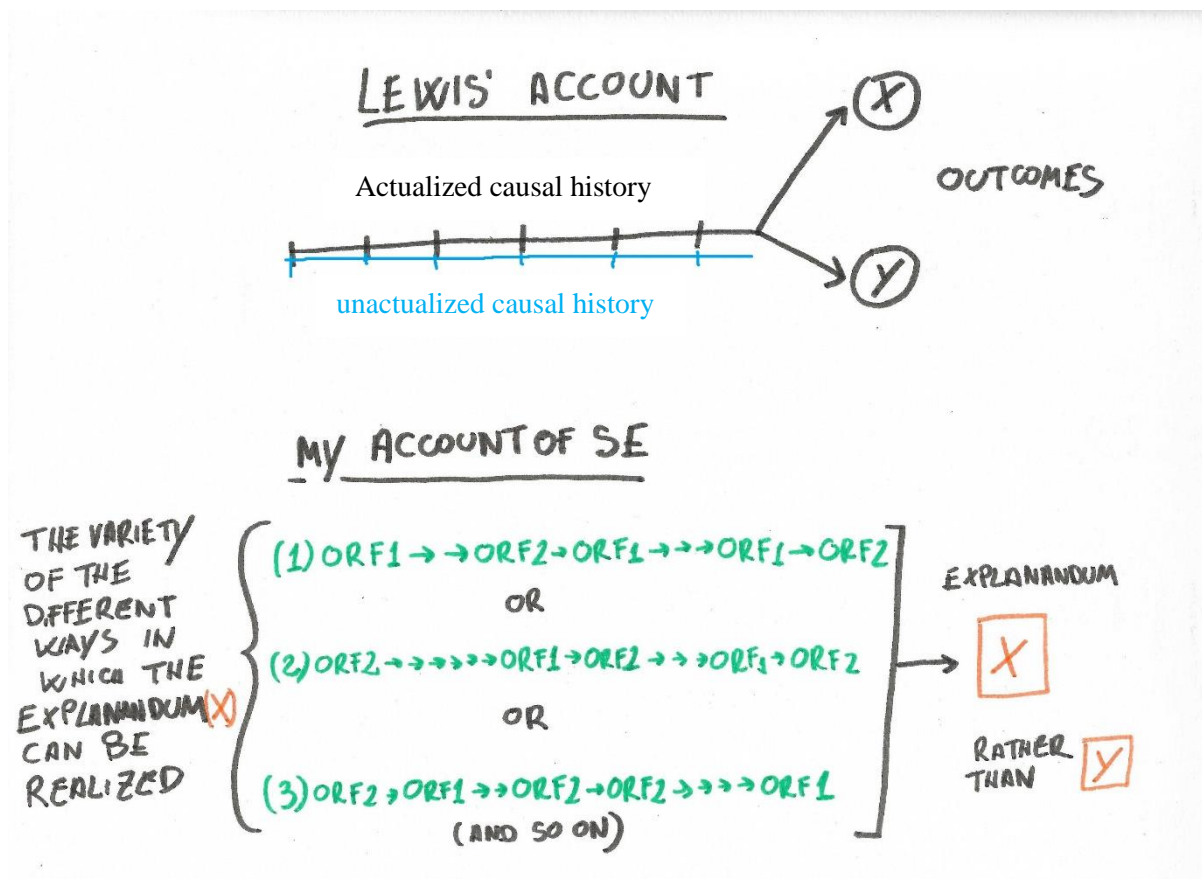 LEWIS' ACCOUNT
X
Actualized causal history
OUTCOMES
unactualized causal history
Y
MY ACCOUNT OF SE
THE VARIETY
OF THE
DIFFERENT
WAYS IN
WHICH THE
EXPLANANDUM(X)
CAN BE
REALIZED
(1) ORF1 → → ORF2 → ORF1 → → → ORF1 → ORF2
OR
(2) ORF2 → → → → → → ORF1 → ORF2 → → → ORF1 → ORF2
OR
(3) ORF2 → ORF1 → → ORF2 → ORF2 → → → → ORF1
(AND SO ON)
EXPLANANDUM
X
RATHER
THAN Y